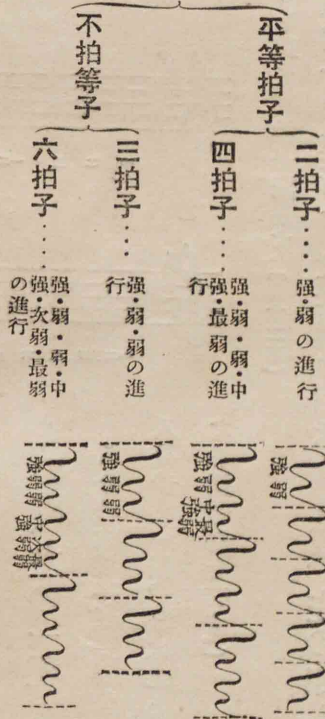 平等拍子
二拍子‥‥强・弱の進行
强弱
四拍子‥‥强・弱・弱・中
强・最弱の進
行
强弱中最
强弱
不拍等子
三拍子‥‥强・弱・弱の進
行
强弱弱
六拍子‥‥强・弱・弱・中
强・次弱・最弱
の進行
强弱弱中次最
强弱弱